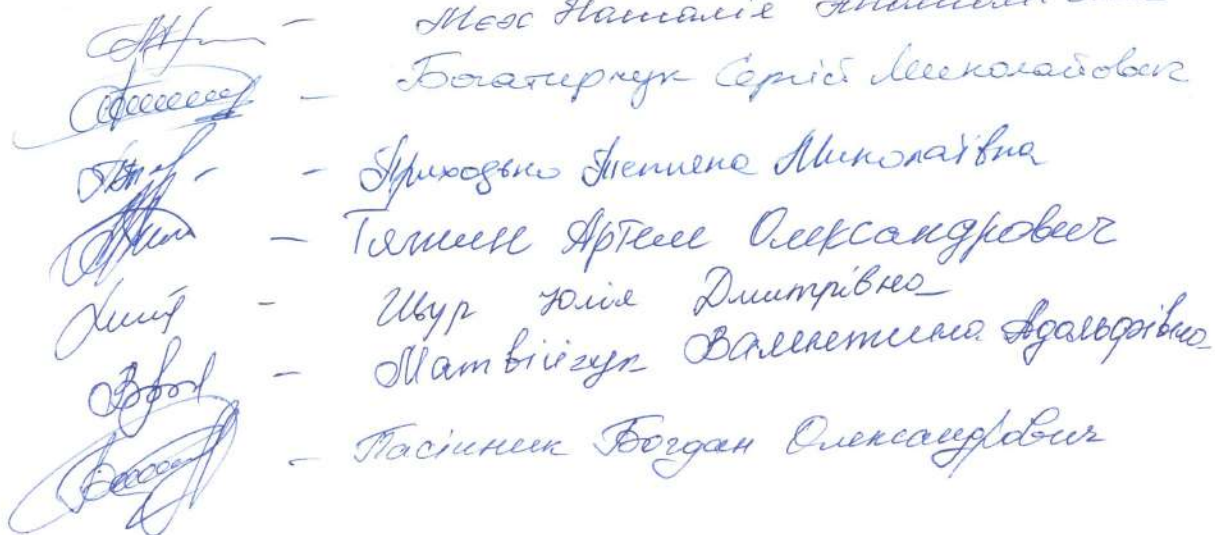 – Мех Наталія
– Богатирчук Сергій Миколайович
– Приходько Тетяна Миколаївна
– Тяжин Артем Олександрович
– Щур Юлія Дмитрівна
– Матвійчук Валентина Адольфівна
– Пасічник Богдан Олександрович